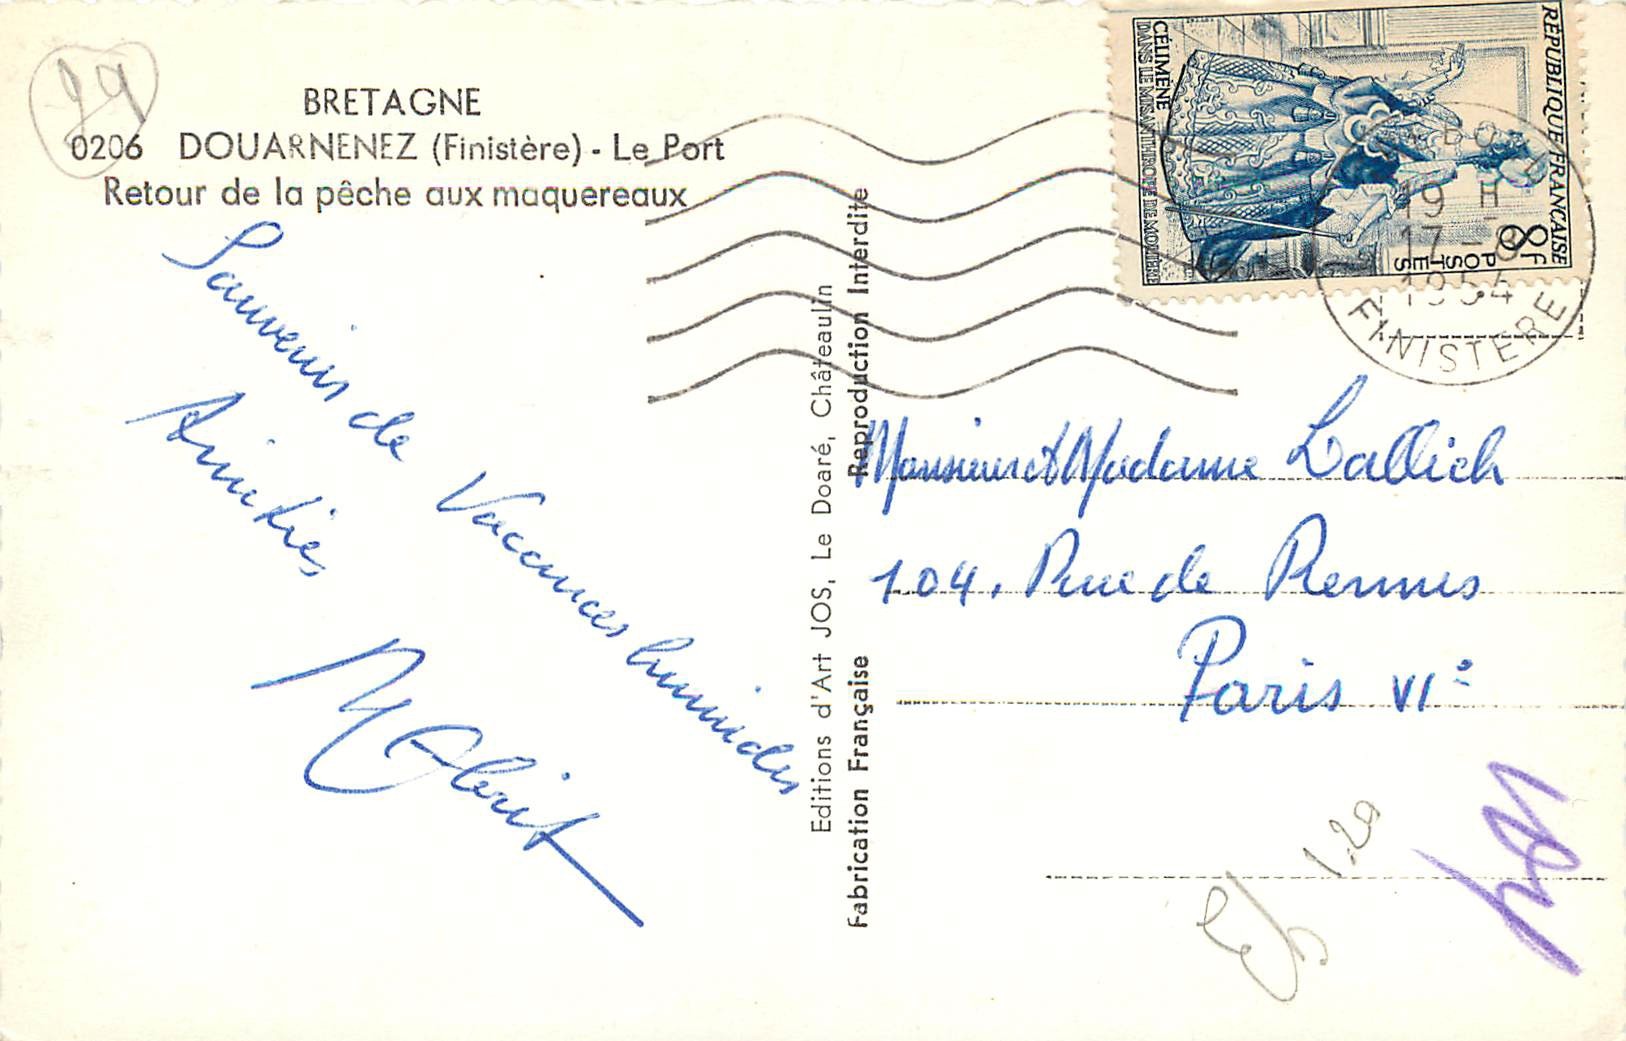 29
BRETAGNE
0206 DOUARNENEZ (Finistère) - Le Port
Retour de la pêche aux maquereaux
Souvenir de Vacances humides
Amitiés
Editions d'Art JOS, Le Doaré, Châteaulin
Fabrication Française Reproduction Interdite
REPUBLIQUE FRANÇAISE
8F
POSTES
CÉLIMÈNE
DANS LE MISANTHROPE DE MOLIÈRE
19 H
17 - 8
1954
FINISTERE
Monsieur et Madame Lallich
104, Rue de Rennes
Paris VIe